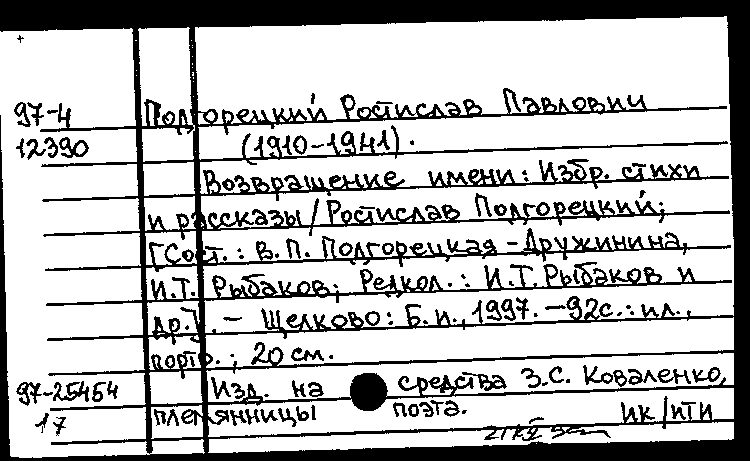 97-4 Подгорецкий Ростислав Павлович
12390 (1910-1941).
Возвращение имени: Избр. стихи
и рассказы/Ростислав Подгорецкий;
[Сост.: В.П. Подгорецкая-Дружинина,
И.Т. Рыбаков; Редкол.: И.Т. Рыбаков и
др.]. - Щелково: Б.и., 1997. - 92с.: ил.,
портр.; 20 см.
97-25454 Изд. на средства З.С. Коваленко,
17 племянницы поэта. ик/пти